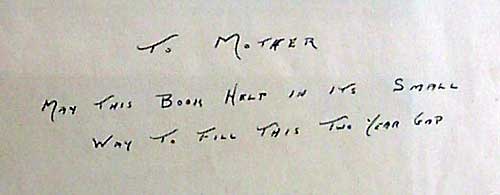 To Mother
May This Book Help in its Small
Way To Fill This Two Year Gap